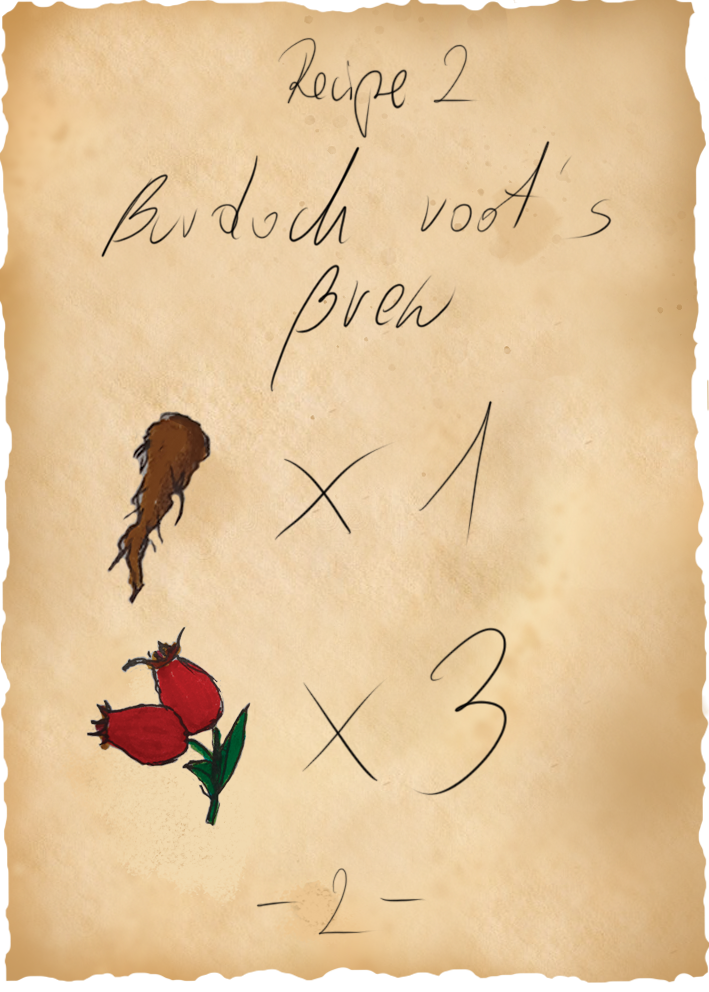 Recipe 2
Burdock root's
Brew
x 1
x 3
- 2 -